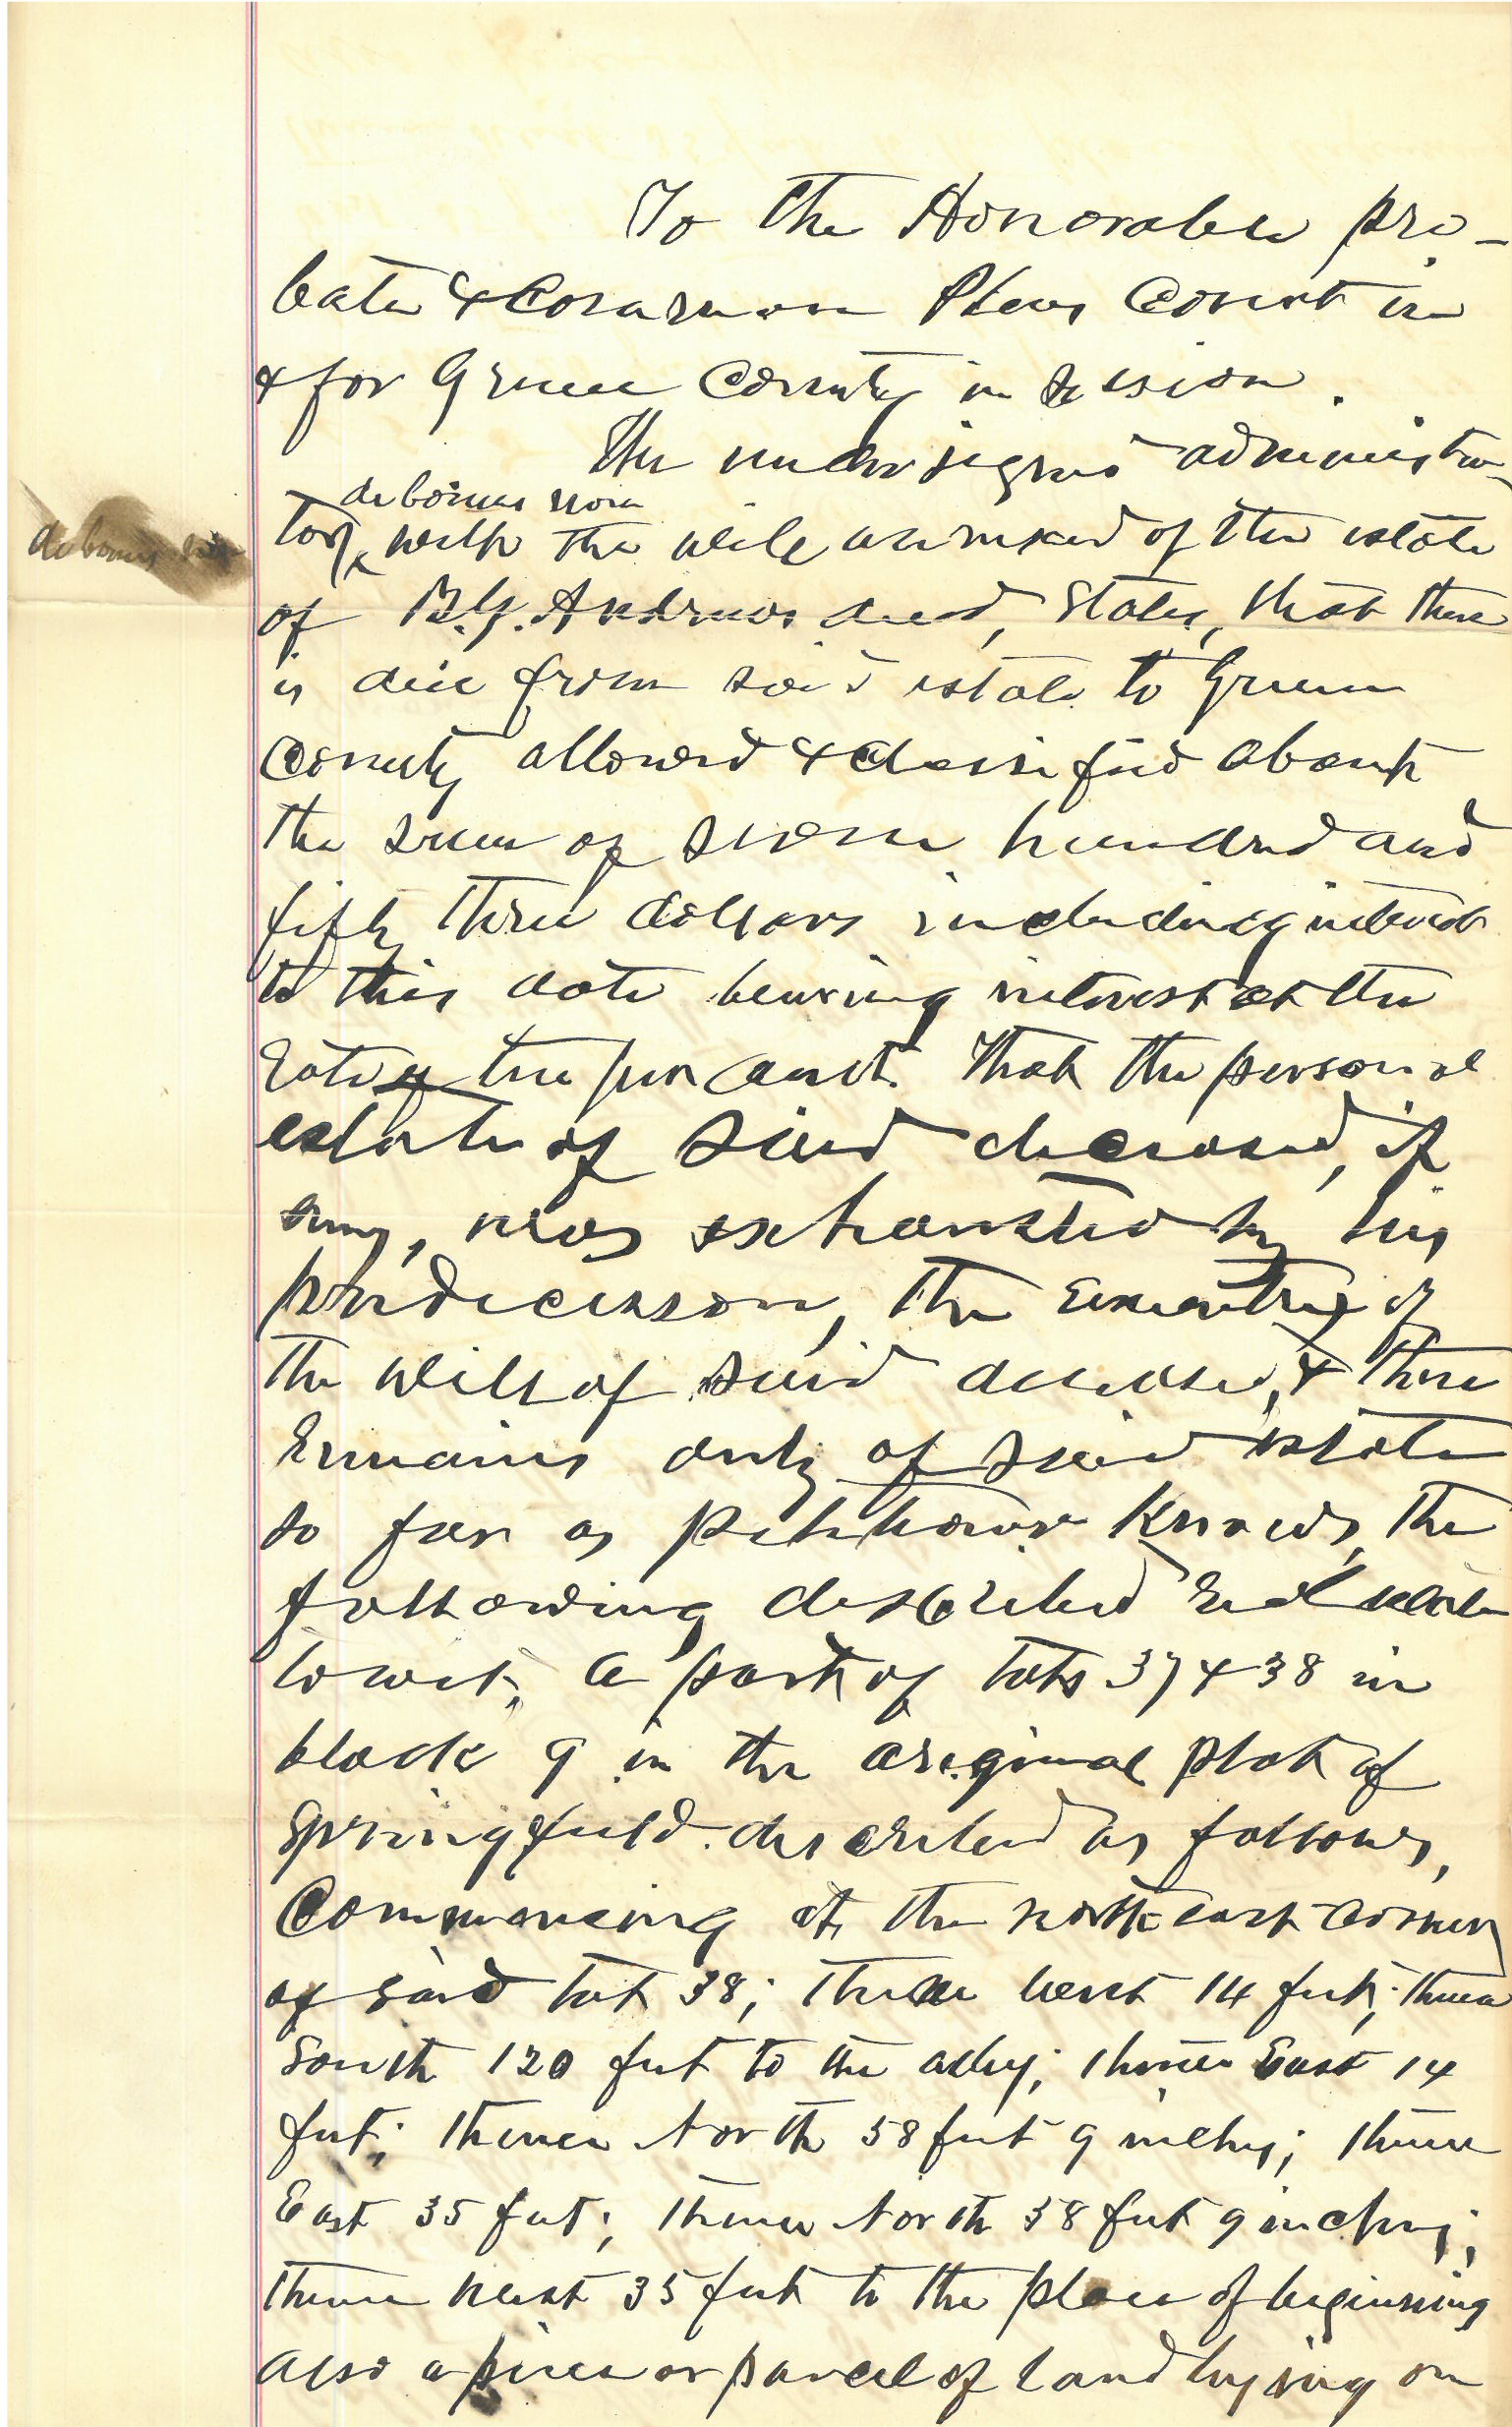 To the Honorable pro-
bate & Common Pleas Court in
& for Greene County in session.
The undersigned administra-
de bonus non
de bonus non
tor, with the will annexed of the estate
of B.Y. Andrews decd, states, that there
is due from said estate to Greene
County allowed & classified about
the sum of seven hundred and
fifty three dollars including interest
to this date bearing interest at the
rate of ten per cent. That the personal
estate of said deceased, if
any, was exhausted by his
predecessor, the Executrix of
the will of said deceased, & there
remains only of said estate
so far as petitioner knows, the
following described real estate
towit, a part of lots 37 & 38 in
block 9 in the original plat of
Springfield described as follows,
Commencing at the north east corner
of said lot 38; thence west 14 feet; thence
South 120 feet to the alley; thence East 14
feet; thence North 58 feet 9 inches; thence
East 35 feet; thence North 58 feet 9 inches;
thence west 35 feet to the place of beginning
also a piece or parcel of land lying on